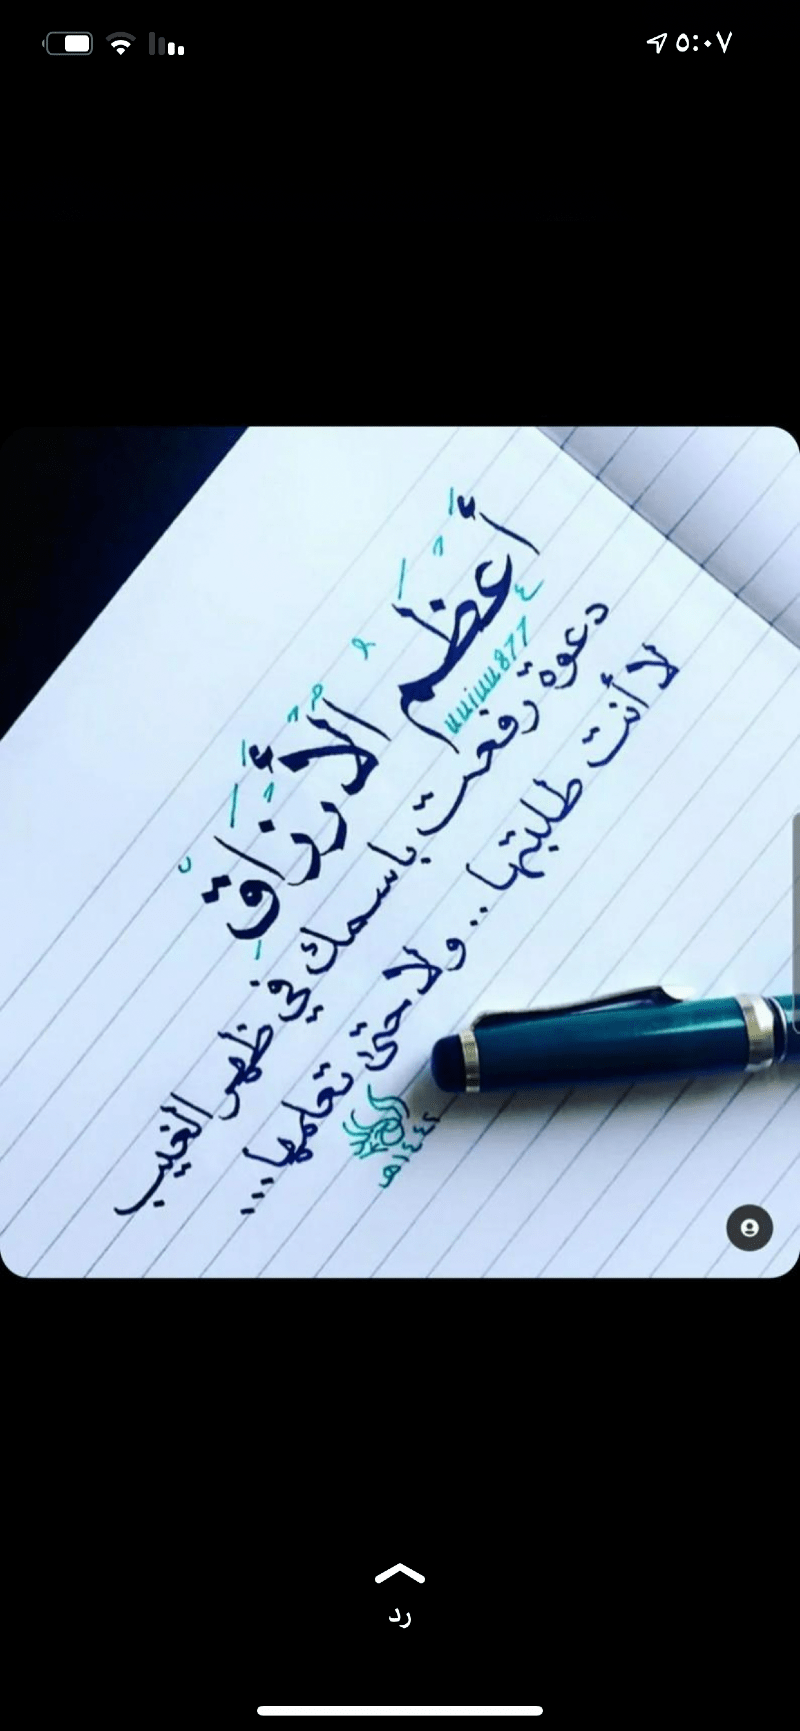 ٥:٠٧
أَعْظَم الأَرْزَاقِ
uuiuu877
دعوة رفعت باسمك في ظهر الغيب
لا أنت طلبتها .. ولا حتى تعلمها ...
١٤٤٢هـ
رد